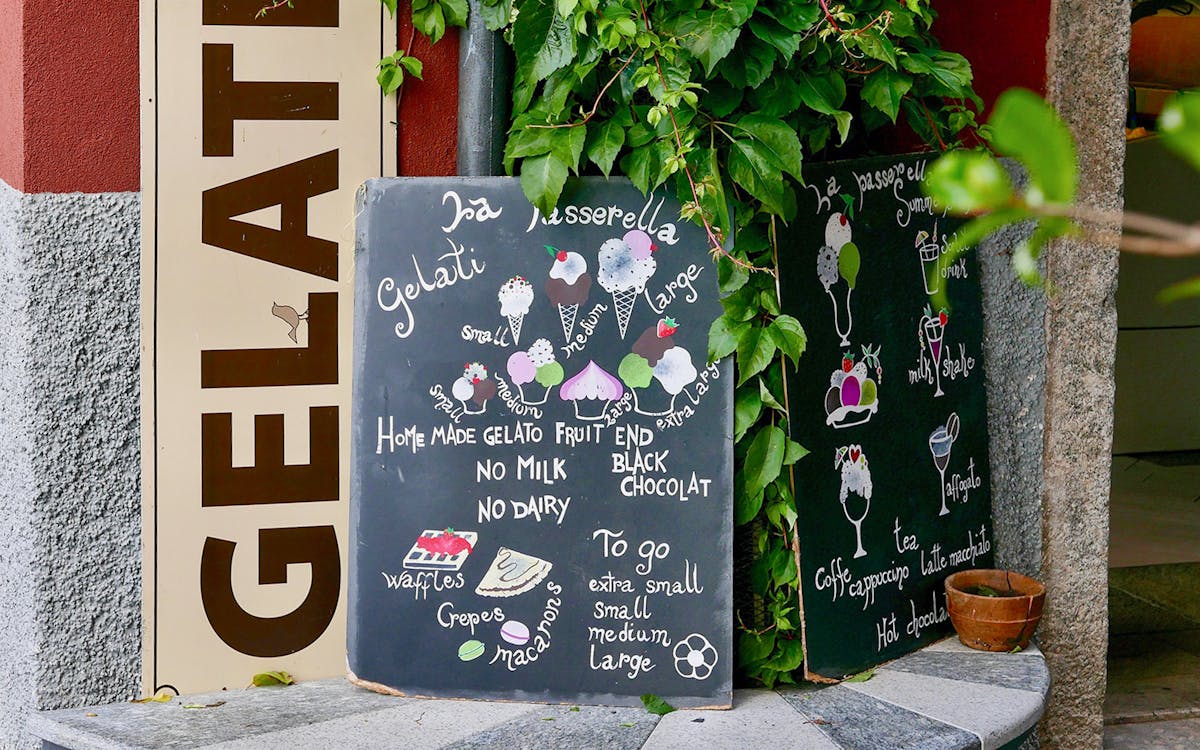 GELATI
La Passerella
Gelati
small
medium
large
small
medium
large
extra large
HOME MADE GELATO FRUIT END
BLACK
CHOCOLAT
NO MILK
NO DAIRY
Waffles
Crepes
macarons
To go
extra small
small
medium
large
La Passerella
Sorbet
Drink
milk shake
affogato
tea
Coffe
cappuccino
latte macchiato
Hot chocola